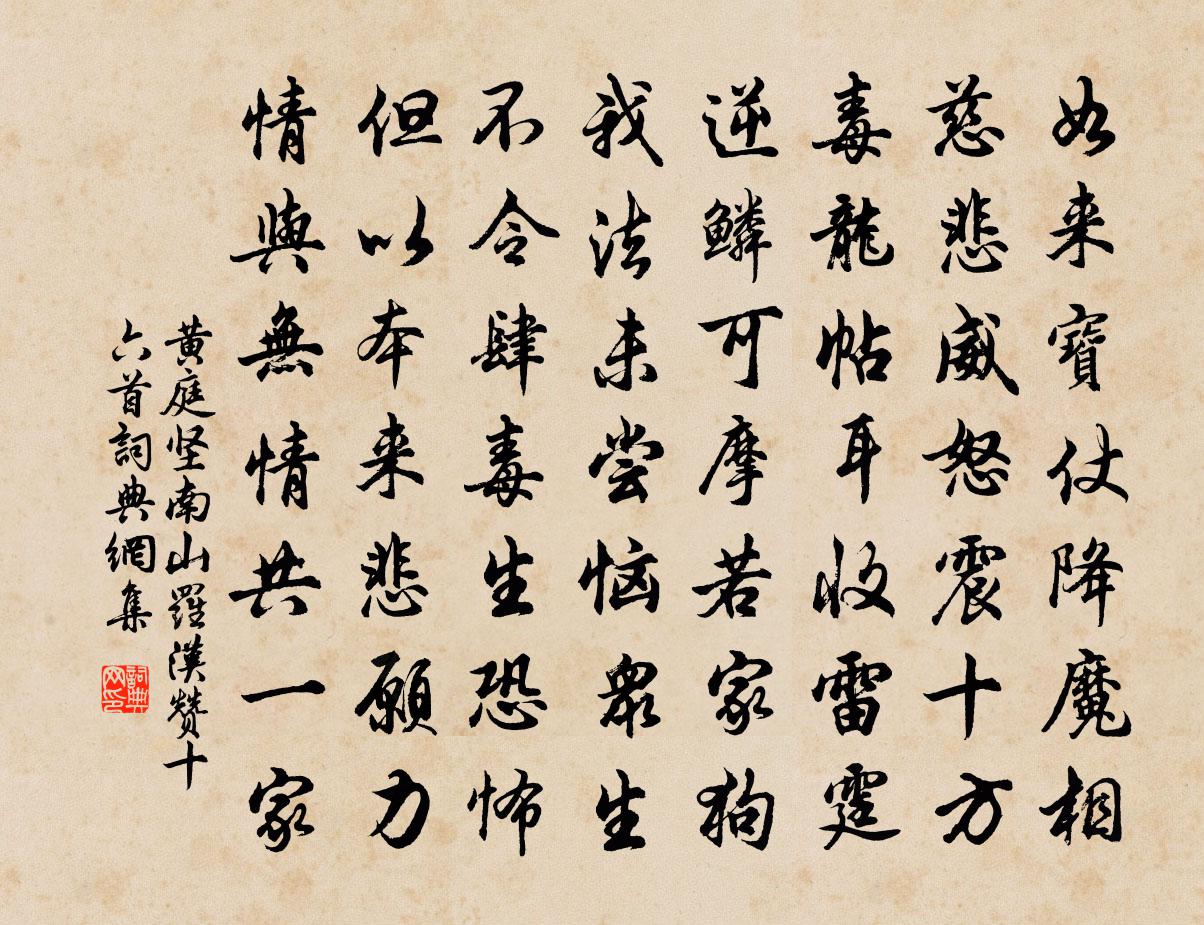 如来寶仗降魔相
慈悲威怒震十方
毒龍帖耳收雷霆
逆鱗可摩若家狗
我法未尝恼衆生
不令肆毒生恐怖
但以本来悲願力
情與無情共一家
黄庭坚南山羅漢赞十
六首詞典網集
詞典
网印